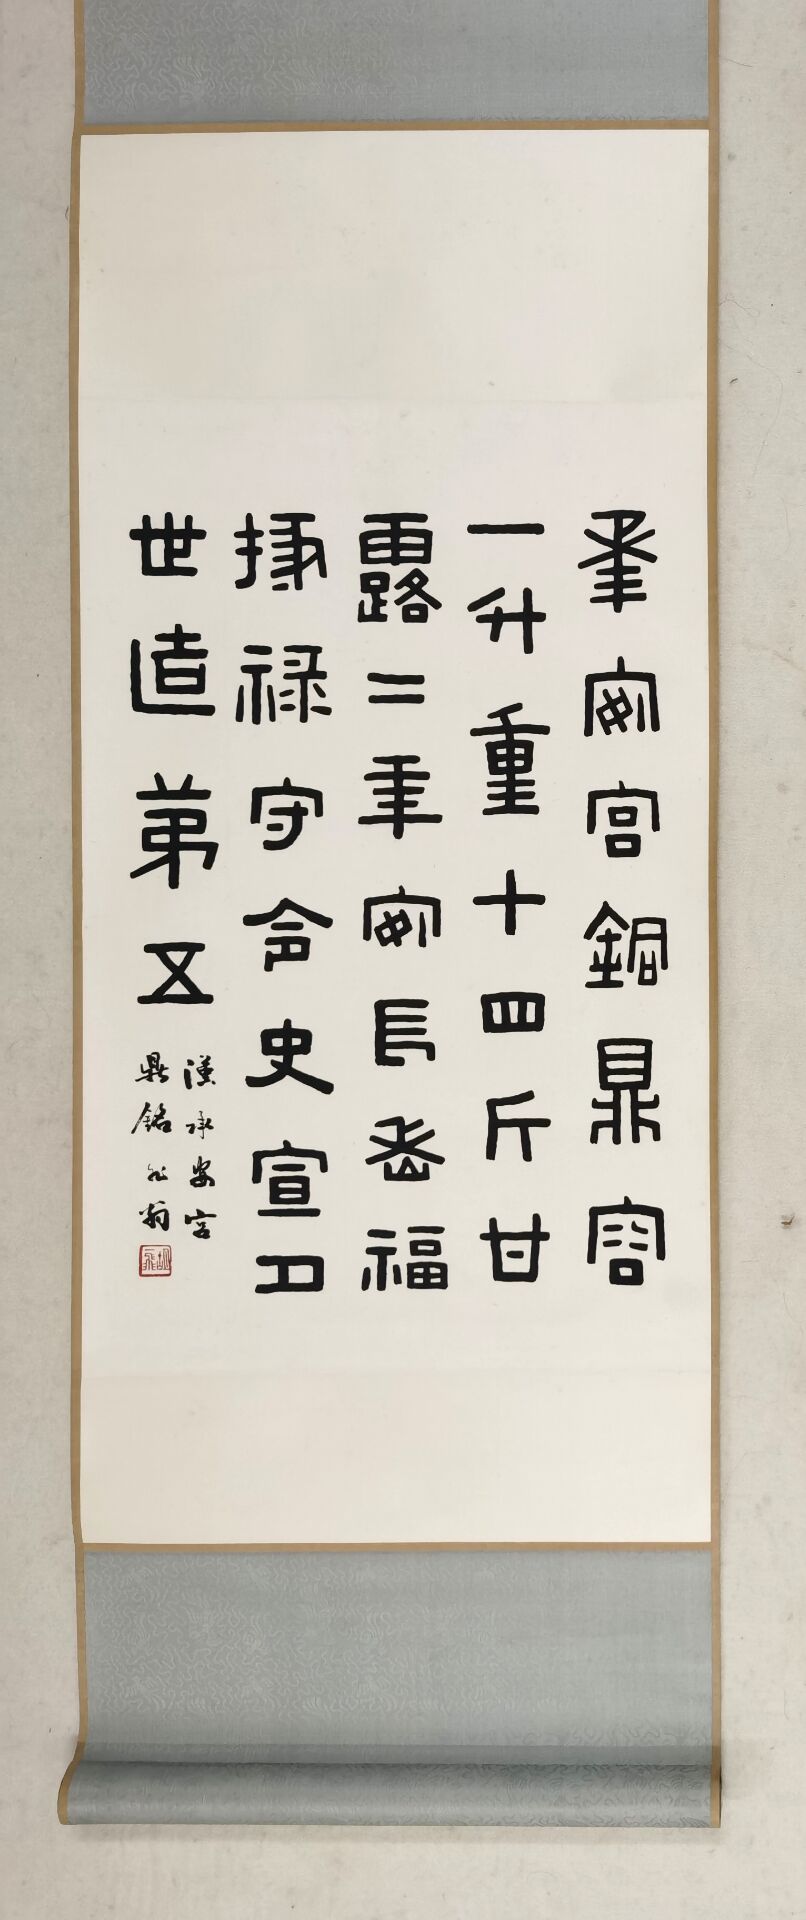 承安宮銅鼎容
一升重十四斤甘
露二年安長孝福
掾祿守令史宣工
世造弟五
漢承安宮
鼎銘
翁